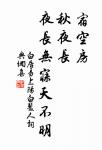 宿空房
秋夜長
夜長無寐天不明
白居易上陽白髮人詞